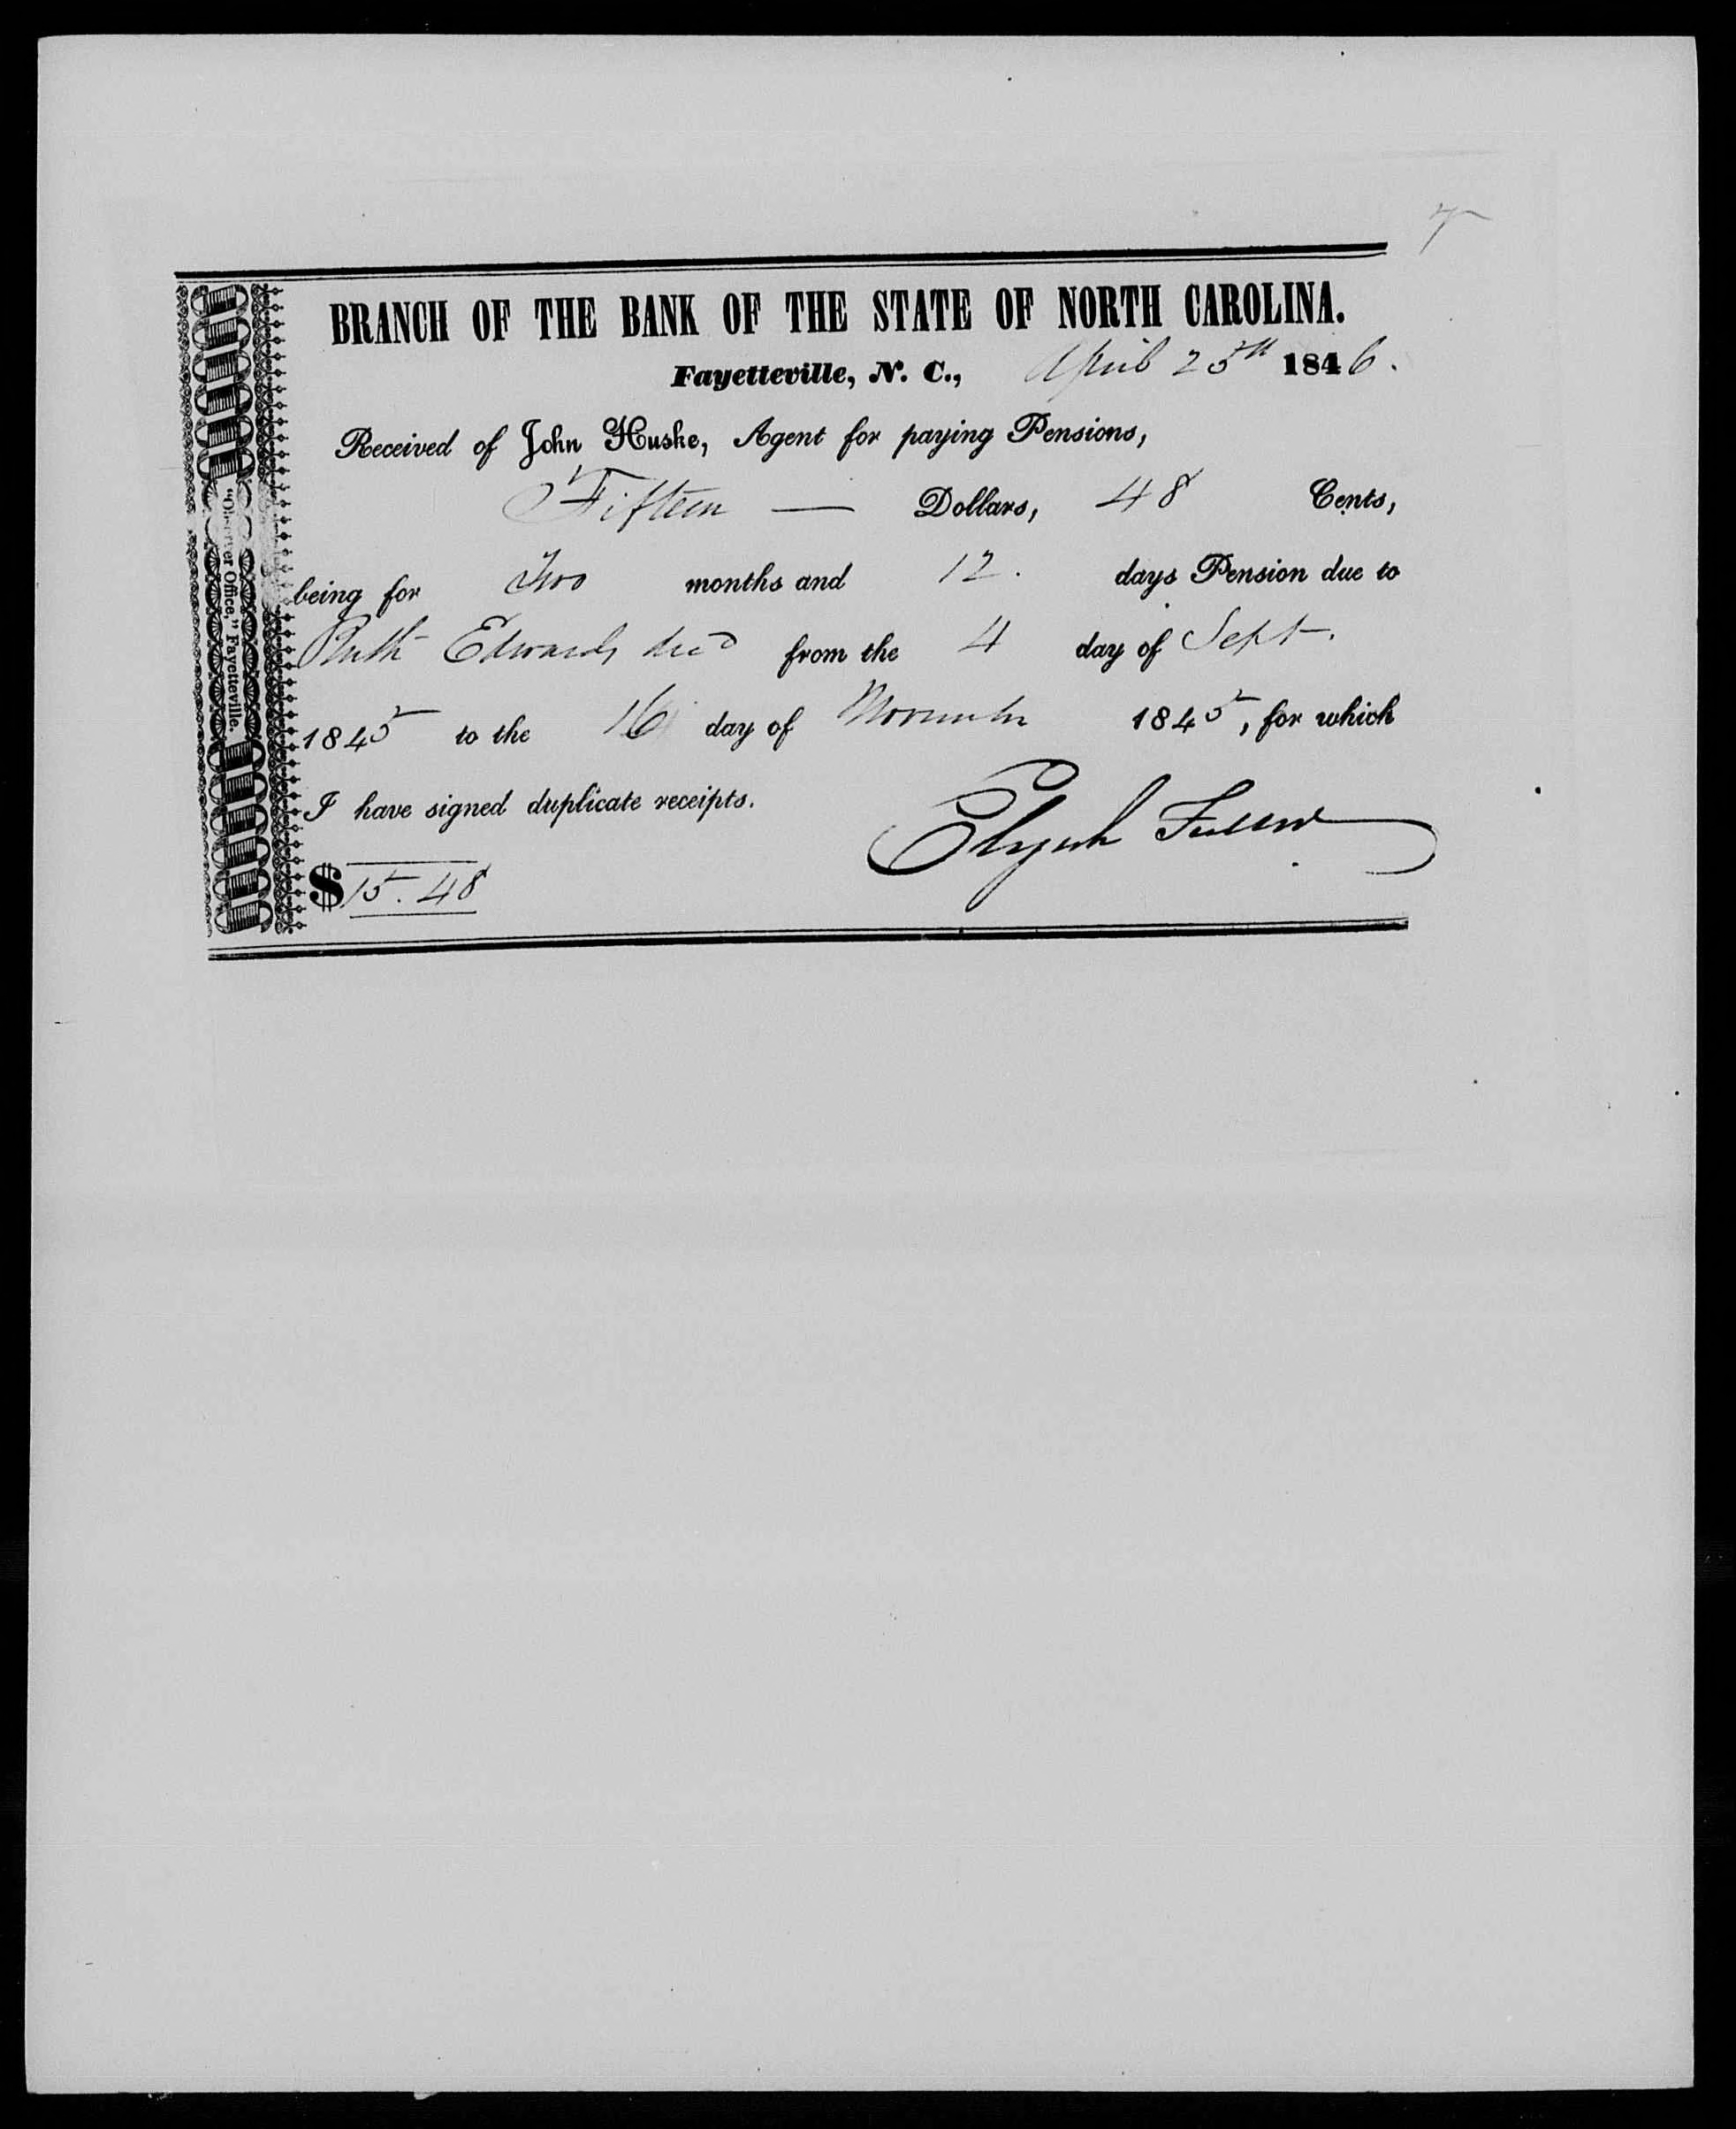 BRANCH OF THE BANK OF THE STATE OF NORTH CAROLINA.
Fayetteville, N. C., April 25th 1846.
Received of John Huske, Agent for paying Pensions,
Fifteen — Dollars, 48 Cents,
being for Two months and 12. days Pension due to
Ruth Edwards decd from the 4 day of Sept.
1845 to the 16 day of November 1845, for which
I have signed duplicate receipts.
Elijah Fuller
$15.48
"Observer Office," Fayetteville.